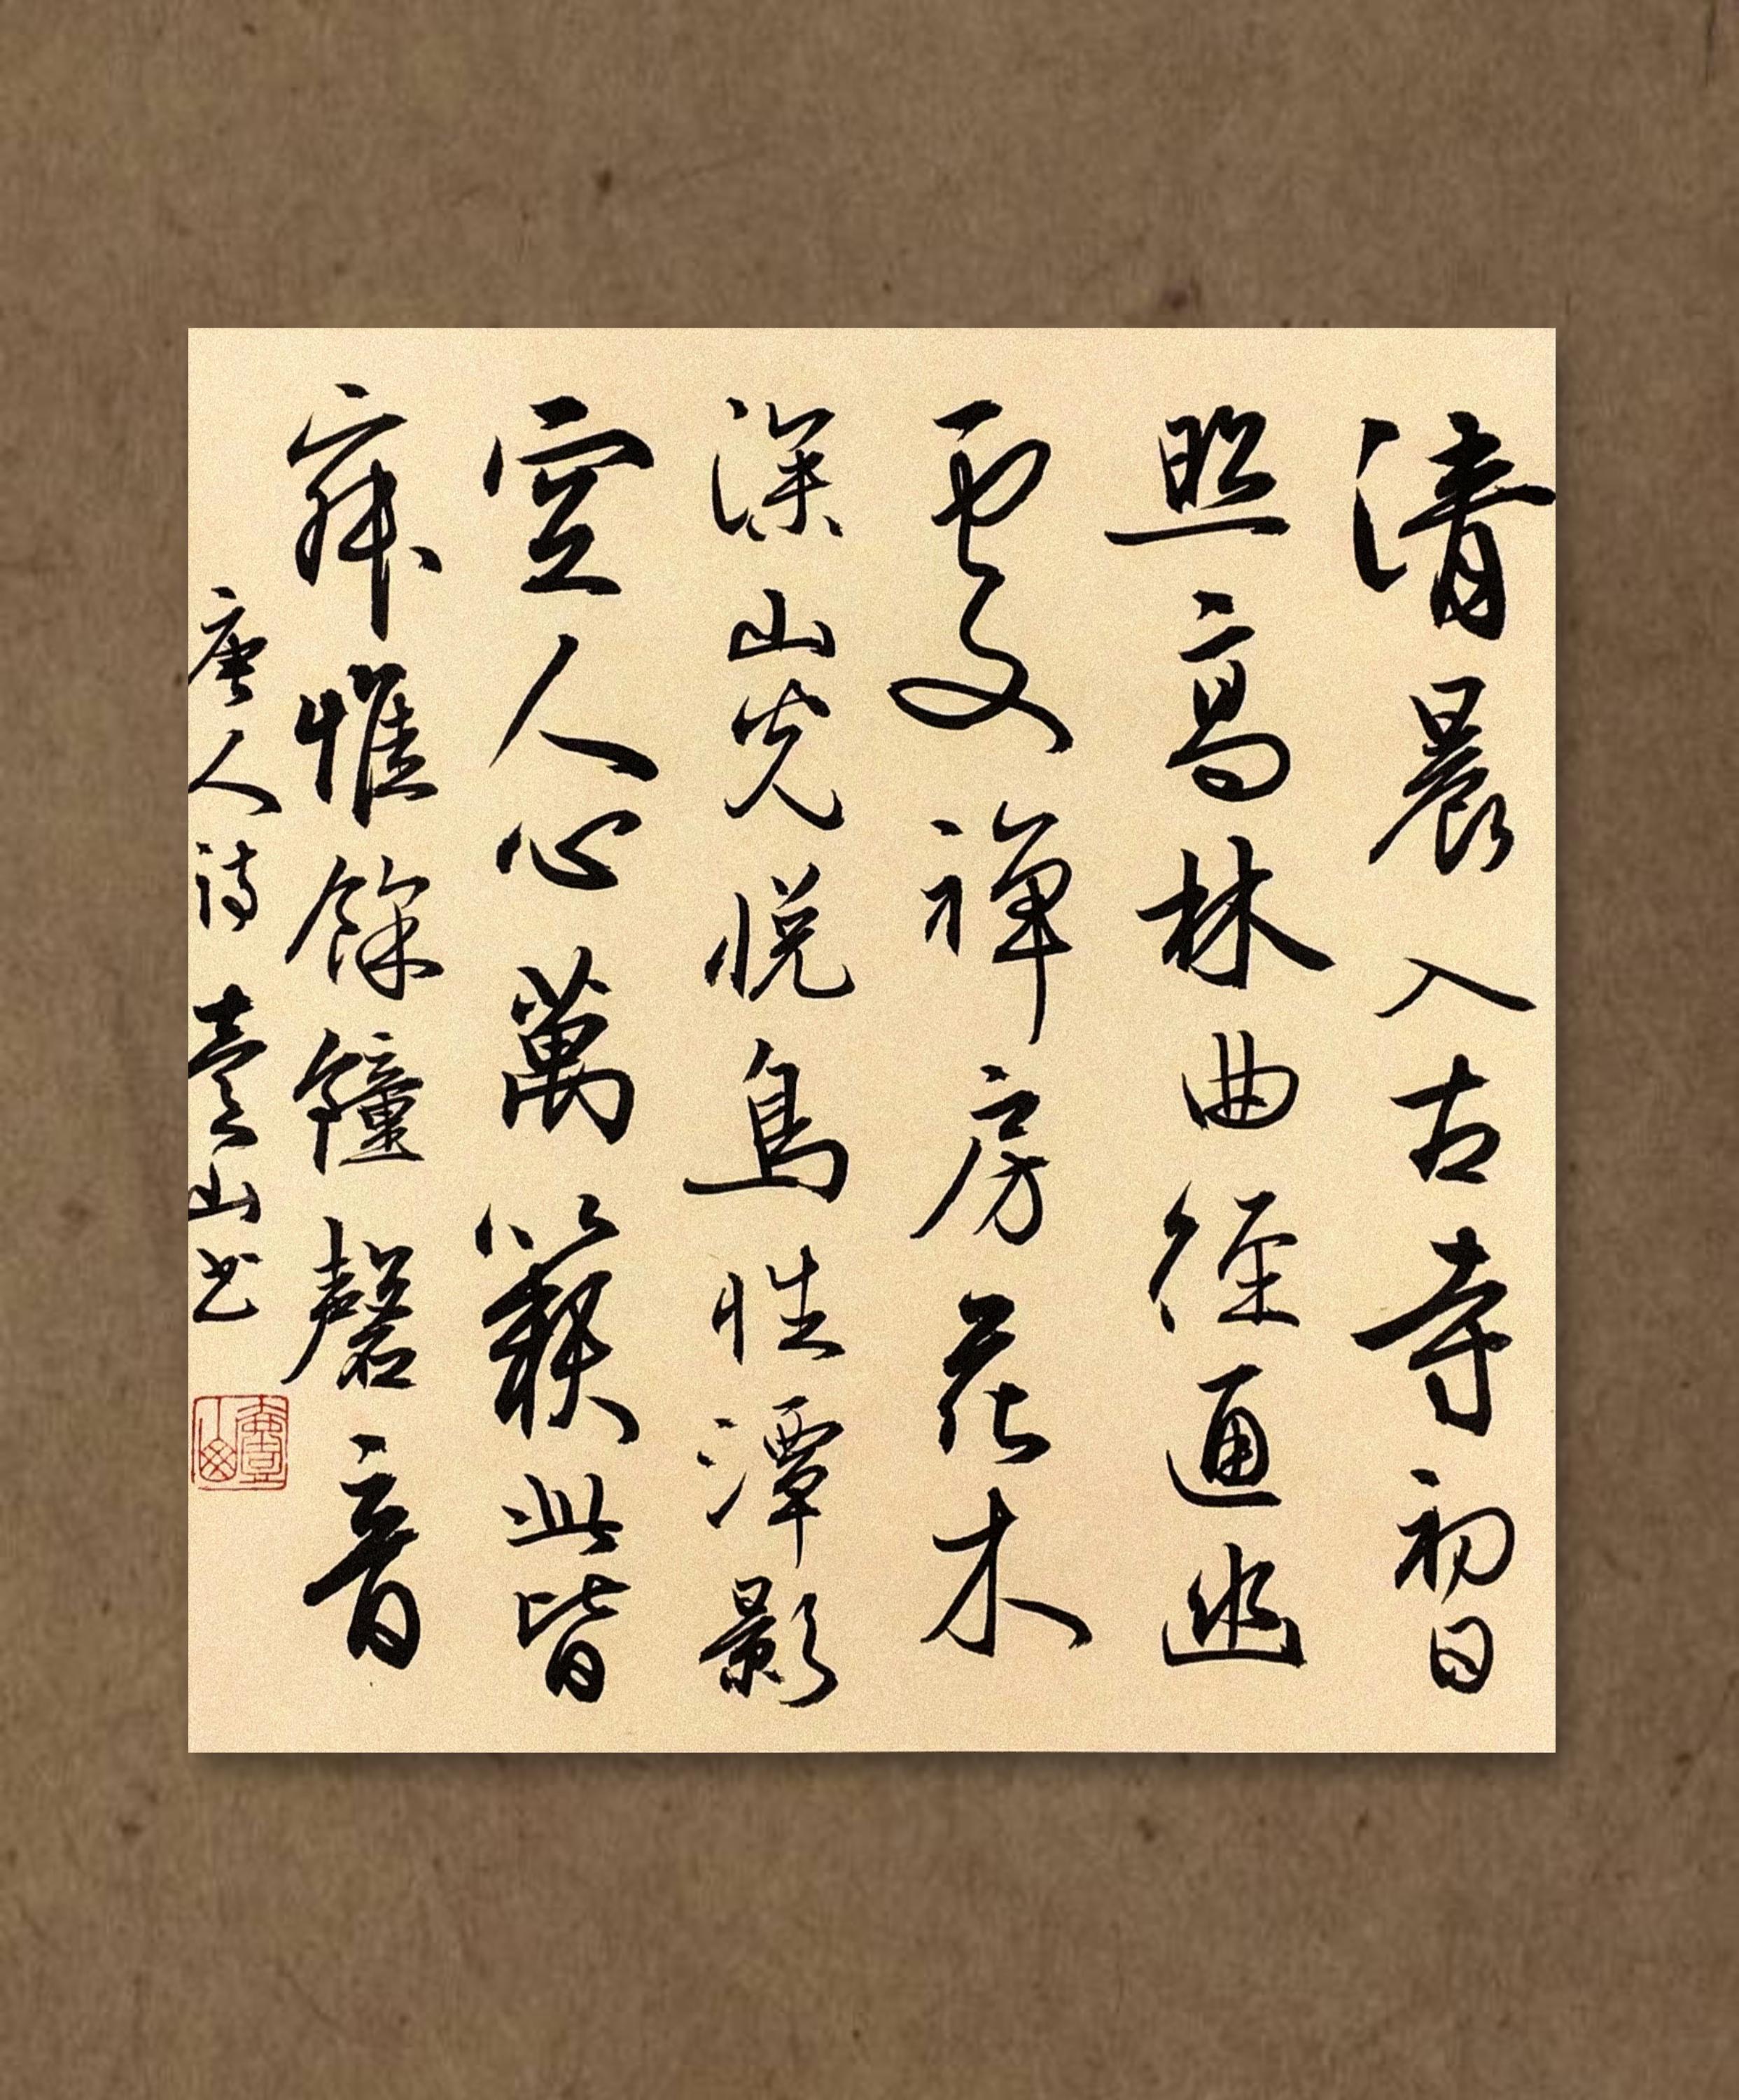 清晨入古寺初日
照高林曲徑通幽
處禪房花木
深山光悅鳥性潭影
空人心萬籟此皆
寂惟餘鐘磬音
唐人詩 山书